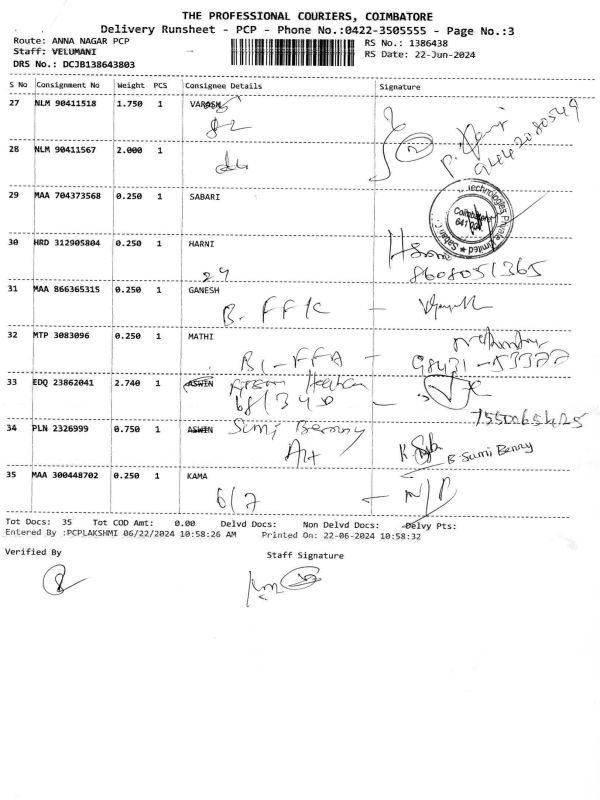 THE PROFESSIONAL COURIERS, COIMBATORE
Delivery Runsheet - PCP - Phone No.:0422-3505555 - Page No.:3
Route: ANNA NAGAR PCP RS No.: 1386438
Staff: VELUMANI RS Date: 22-Jun-2024
DRS No.: DCJB138643803
S No Consignment No Weight PCS Consignee Details Signature
27 NLM 90411518 1.750 1
9442080549
28 NLM 90411567 2.000 1
29 MAA 704373568 0.250 1 SABARI
Technologies Private Limited
Coimbatore
30 HRD 312905804 0.250 1 HARNI
8608051365
31 MAA 866365315 0.250 1 GANESH
B. FFK -
32 MTP 3083096 0.250 1 MATHI
33 EDQ 23862041 2.740 1 ASWIN
7550065425
34 PLN 2326999 0.750 1 ASWIN Sumi Benny
B. Sumi Benny
35 MAA 300448702 0.250 1 KAMA
6/7 - N/P
Tot Docs: 35 Tot COD Amt: 0.00 Delvd Docs: Non Delvd Docs: Delvy Pts:
Entered By :PCPLAKSHMI 06/22/2024 10:58:26 AM Printed On: 22-06-2024 10:58:32
Verified By Staff Signature